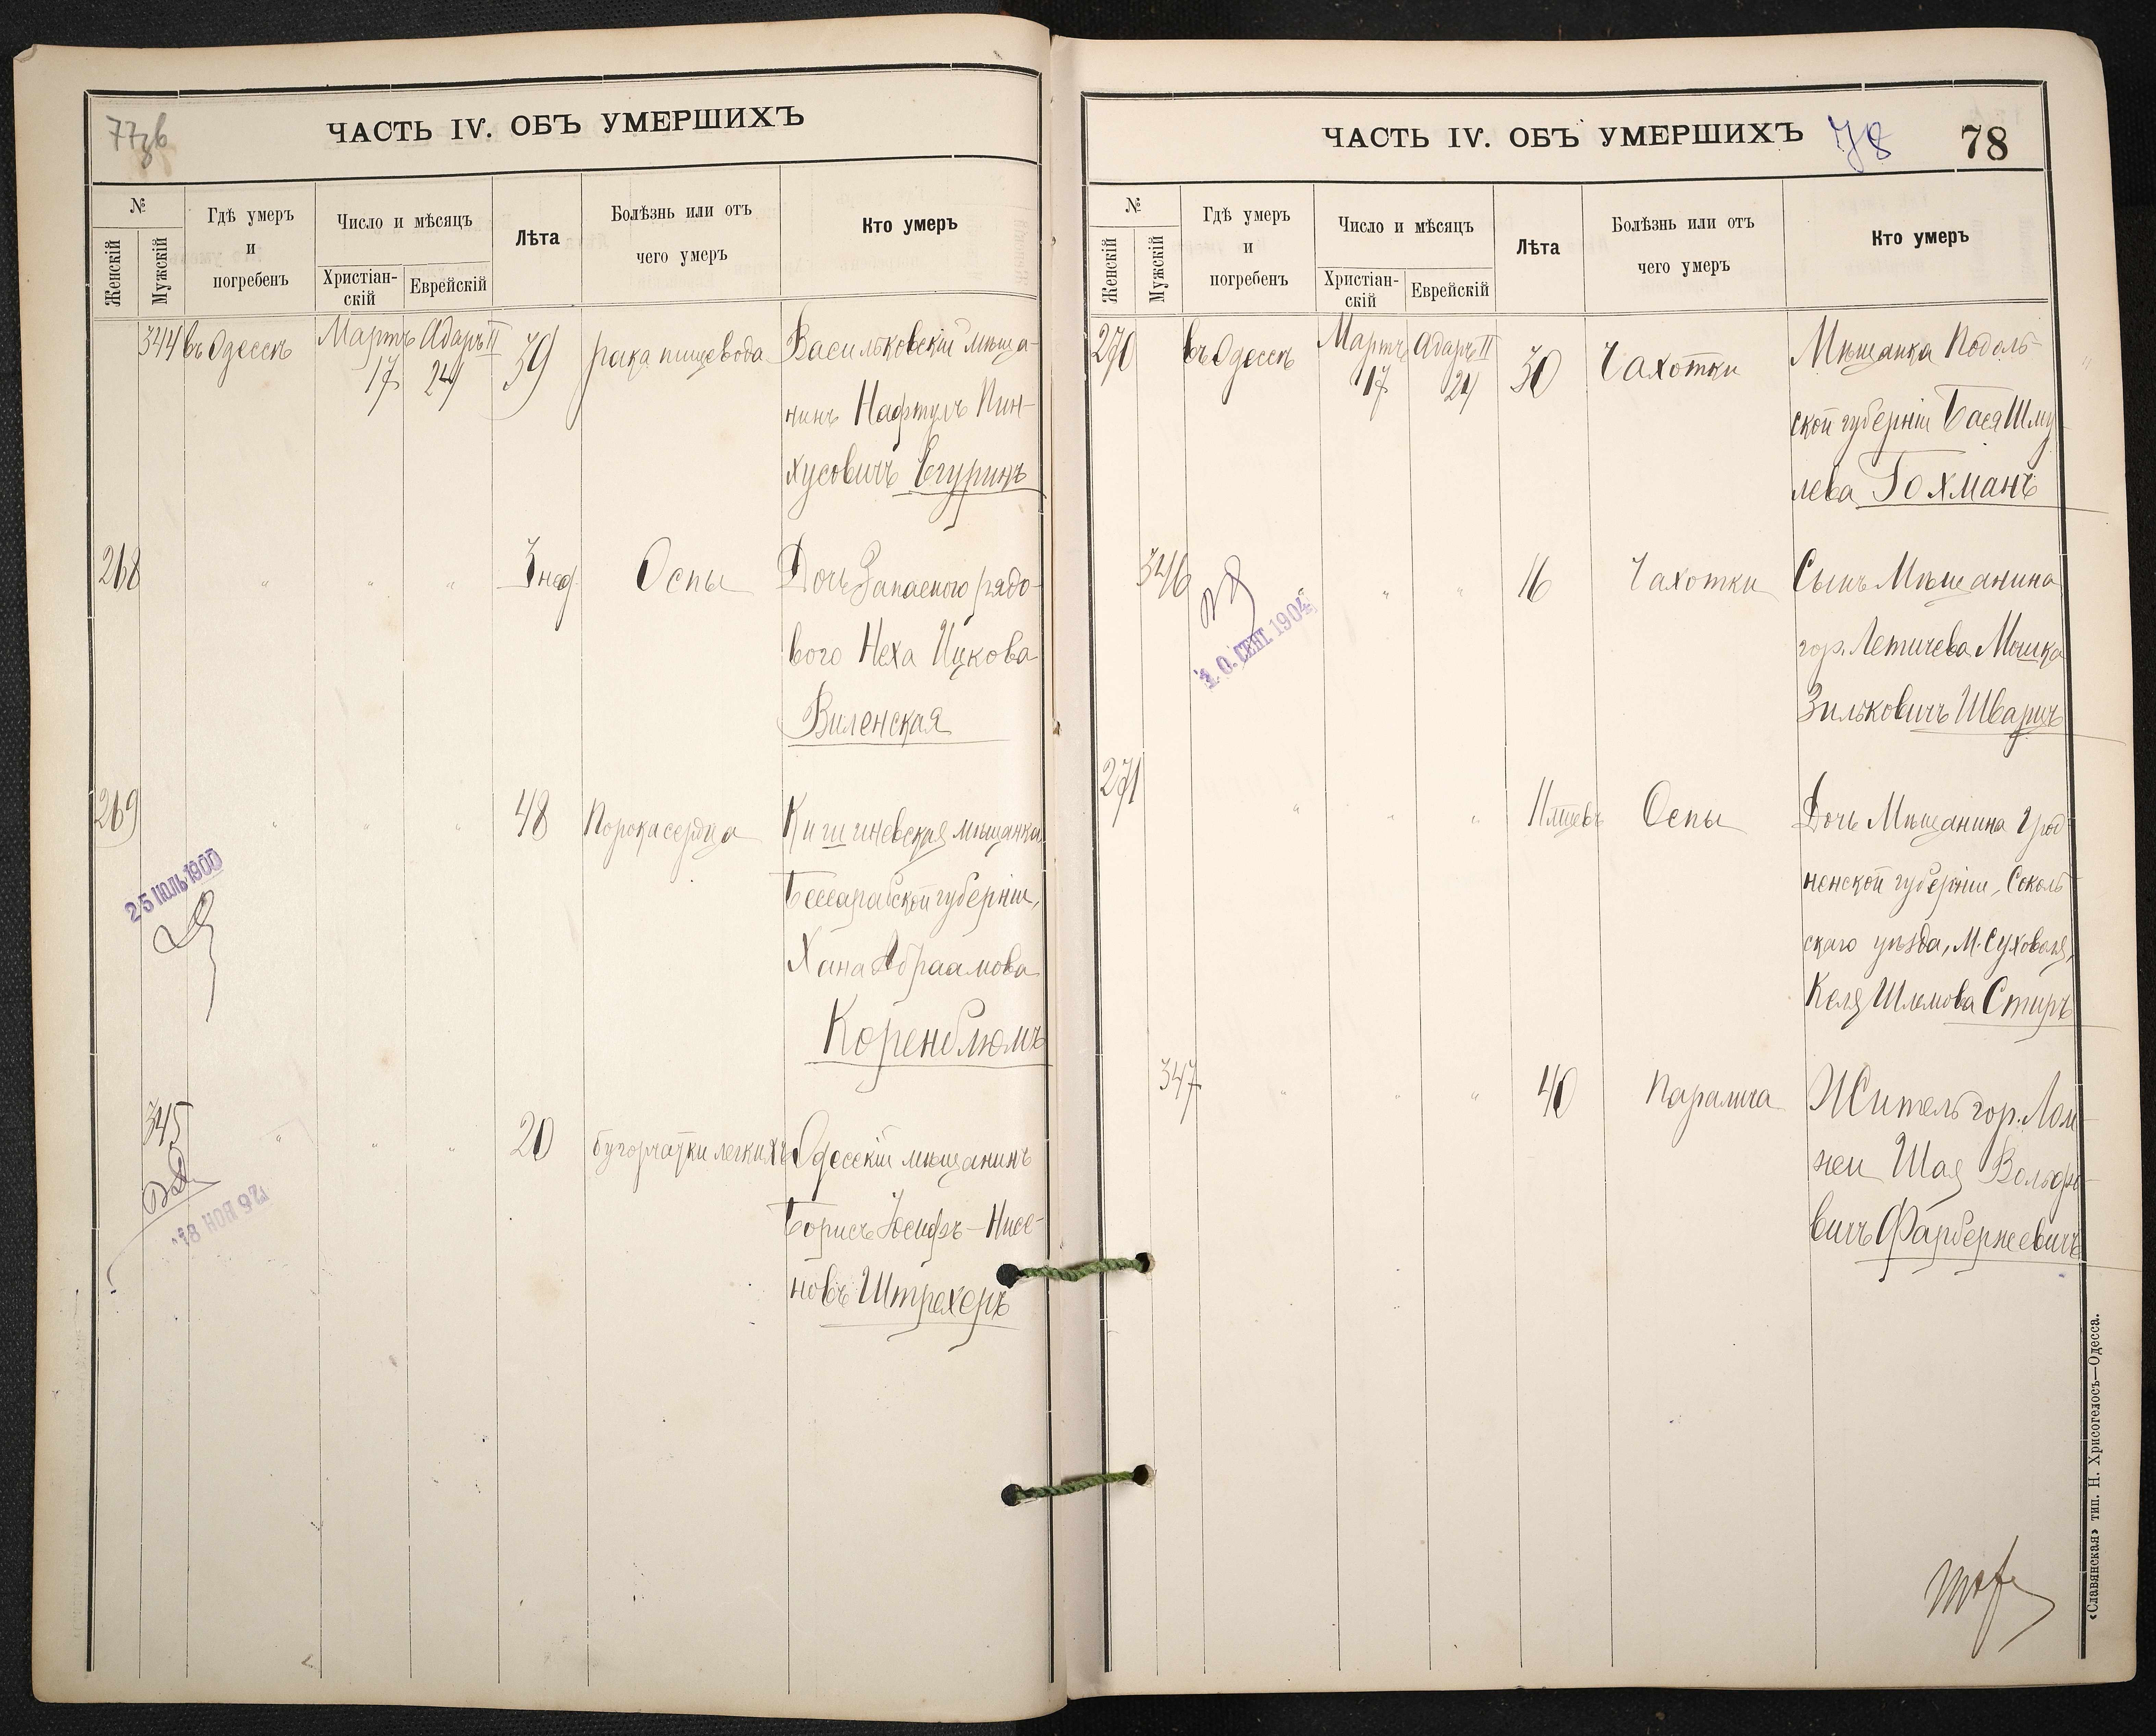 77об
ЧАСТЬ IV. ОБЪ УМЕРШИХЪ
№
Женскій
Мужскій
Гдѣ умеръ
и
погребенъ
Число и мѣсяцъ
Христіан-
скій
Еврейскій
Лѣта
Болѣзнь или отъ
чего умеръ
Кто умеръ
344 въ Одессѣ Мартъ 17 Адаръ II 24 39 рака пищевода Васильковскій мѣща-
нинъ Нафтулъ Пин-
хусовичъ Егуринъ
268 " " " 3 нед. Оспы Дочь Запасного рядо-
вого Неха Ицкова
Виленская
269 " " " 48 Порока сердца Кишиневская мѣщанка
Бессарабской губерніи,
Хана Абраамова
Коренблюмъ
25 ИЮЛЬ 1900
345 " " " 20 бугорчатки легкихъ Одесскій мѣщанинъ
Борисъ Іосифъ-Нисе-
новъ Штрехеръ
18 НОЯ 97
ЧАСТЬ IV. ОБЪ УМЕРШИХЪ
78
78
№
Женскій
Мужскій
Гдѣ умеръ
и
погребенъ
Число и мѣсяцъ
Христіан-
скій
Еврейскій
Лѣта
Болѣзнь или отъ
чего умеръ
Кто умеръ
270 въ Одессѣ Мартъ 17 Адаръ II 24 30 Чахотки Мѣщанка Подоль-
ской губерніи Бася Шму-
лева Гохманъ
346 " " 16 Чахотки Сынъ Мѣщанина
гор. Летичева Мошка
Зильковичъ Шварцъ
10 СЕНТ. 1904
271 " " " 11 мѣсяцевъ Оспы Дочь Мѣщанина Грод-
ненской губерніи, Соколь-
скаго уѣзда, М. Суховоля,
Келя Шлемова Стиръ
347 " " " 40 Паралича Житель гор. Лом-
жи Шая Вольфо-
вичъ Фарбержевичъ
«Славянская» тип. Н. Хрисогелосъ—Одесса.